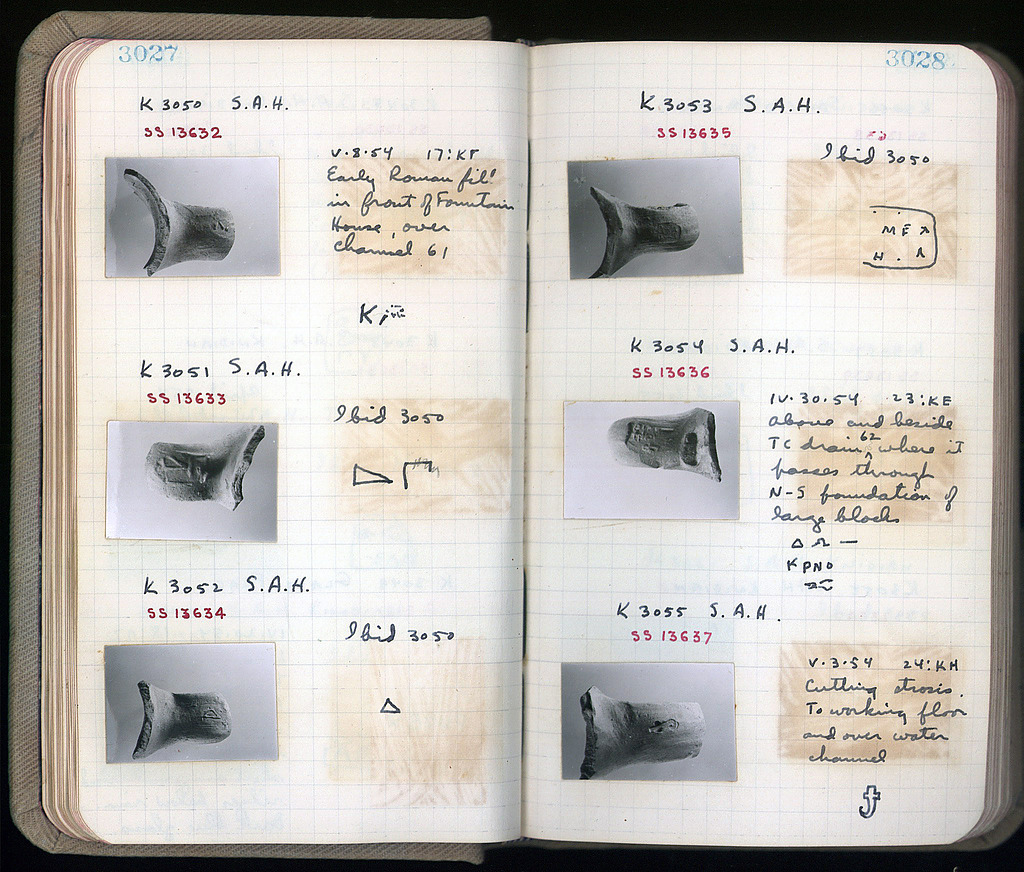 3027
K 3050 S.A.H.
SS 13632
V.8.54 17:KF
Early Roman fill
in front of Fountain
House, over
channel 61
K
K 3051 S.A.H.
SS 13633
Ibid 3050
K 3052 S.A.H.
SS 13634
Ibid 3050
Δ
3028
K 3053 S.A.H.
SS 13635
Ibid 3050
ME
H .
K 3054 S.A.H.
SS 13636
IV.30.54 23:KE
above and beside
TC drain 62, where it
passes through
N-S foundation of
large blocks
Δ
KPNO
K 3055 S.A.H.
SS 13637
V.3.54 24:KH
Cutting
To working floor
and over water
channel